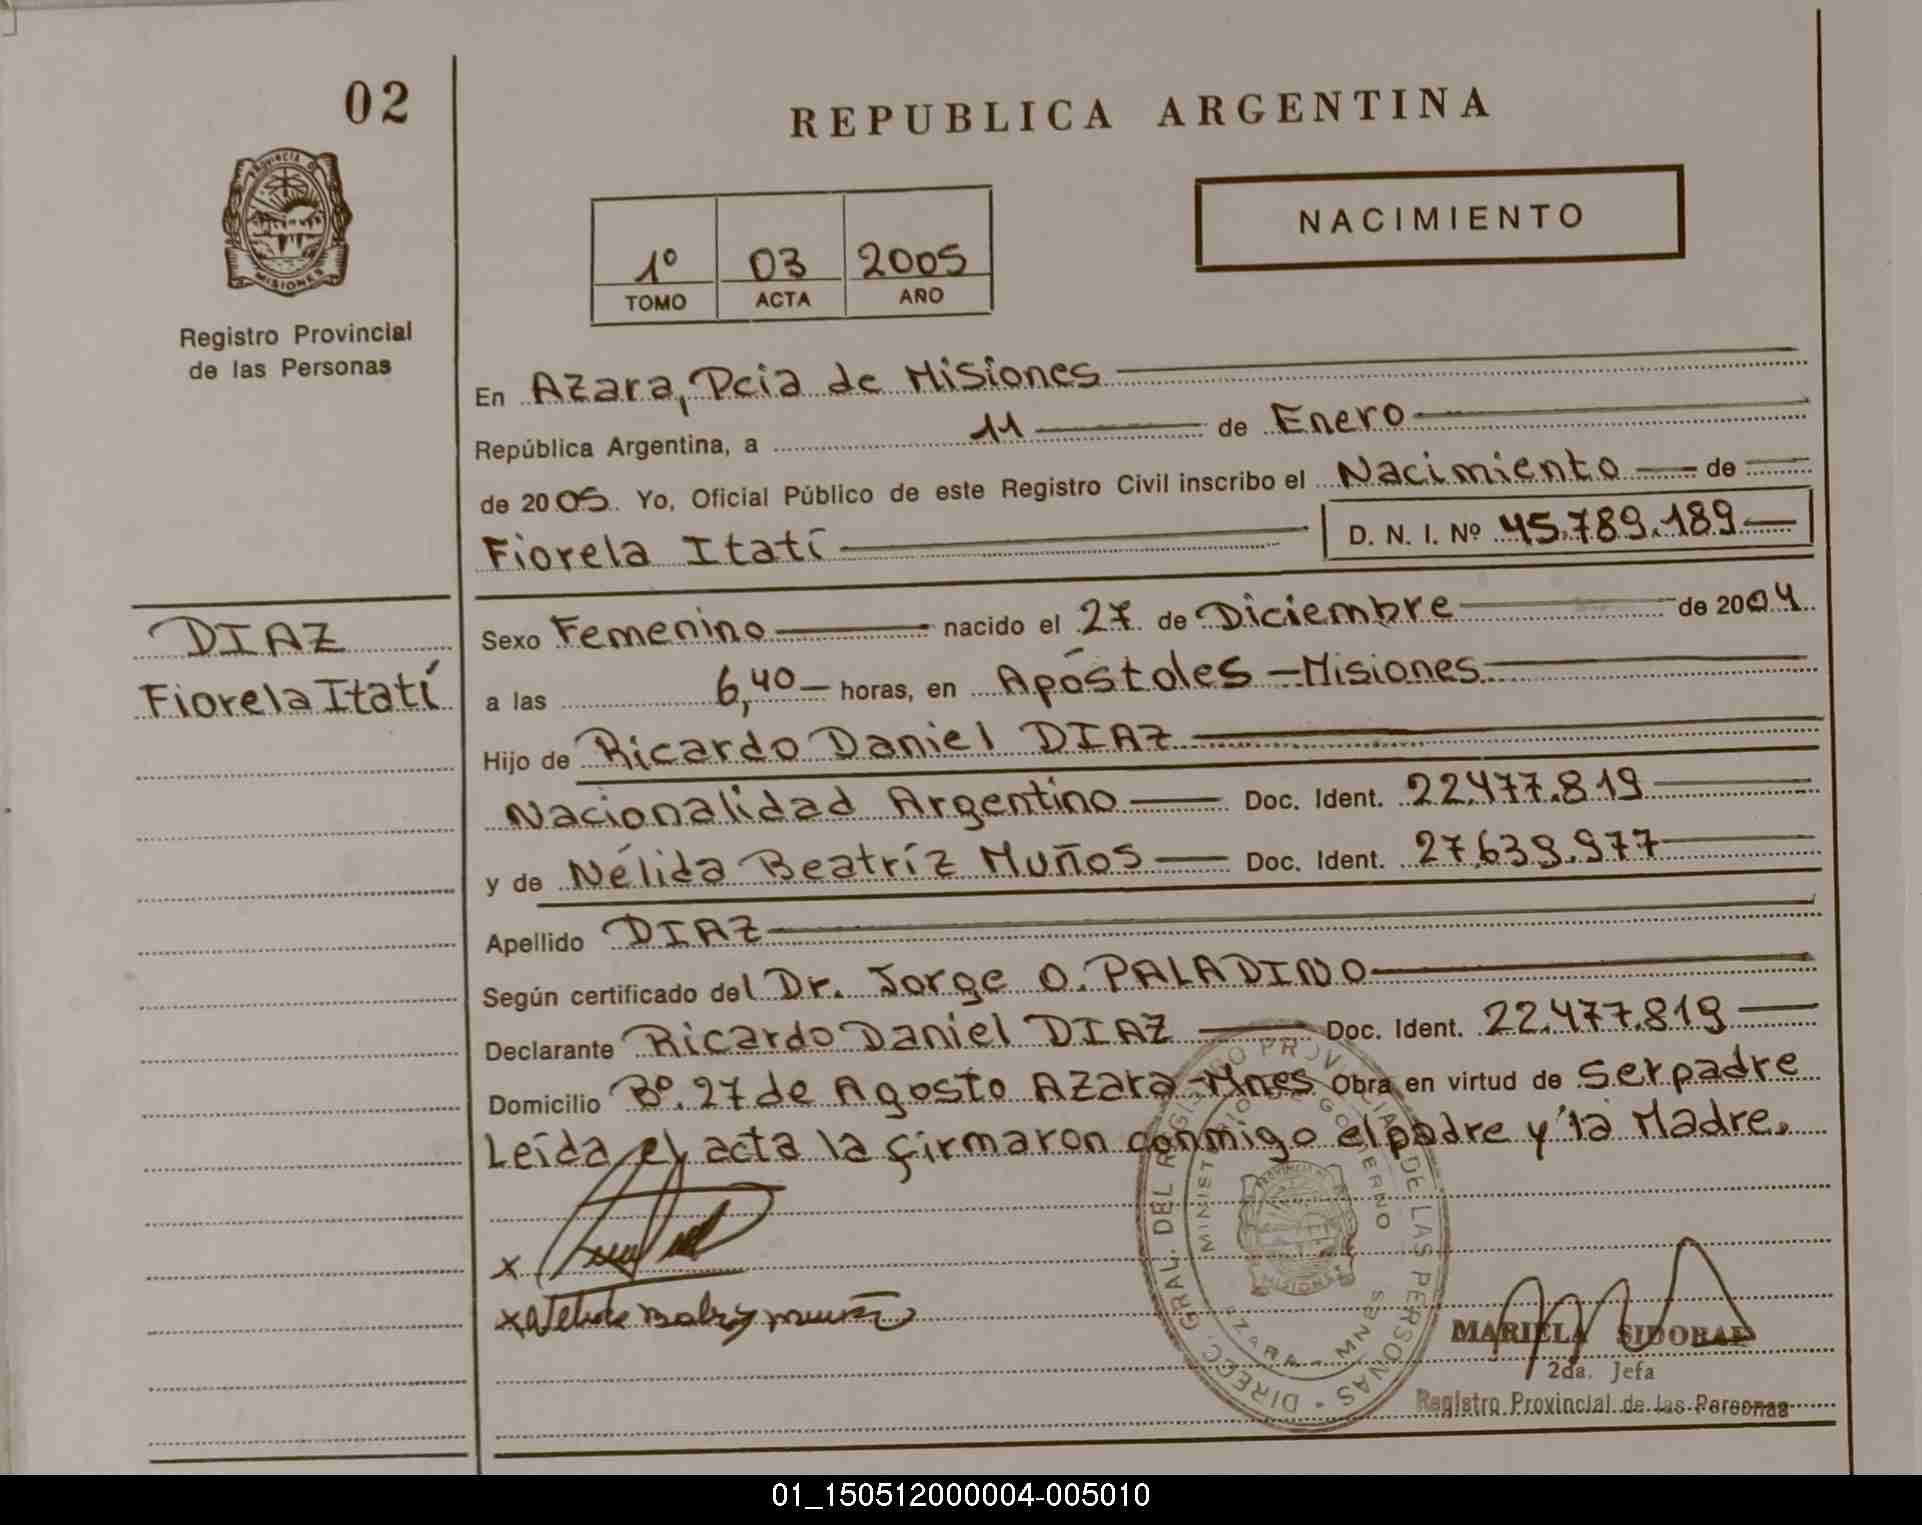 02
REPUBLICA ARGENTINA
NACIMIENTO
1º 03 2005
TOMO ACTA AÑO
PROVINCIA DE
MISIONES
Registro Provincial
de las Personas
En Azara, Pcia de Misiones
República Argentina, a 11 de Enero
de 2005. Yo, Oficial Público de este Registro Civil inscribo el Nacimiento de
Fiorela Itatí D. N. I. Nº 45.789.189
DIAZ
Fiorela Itatí
Sexo Femenino nacido el 27 de Diciembre de 2004
a las 6,40 horas, en Apóstoles - Misiones
Hijo de Ricardo Daniel DIAZ
Nacionalidad Argentino Doc. Ident. 22.477.819
y de Nélida Beatríz Muños Doc. Ident. 27.639.977
Apellido DIAZ
Según certificado del Dr. Jorge O. PALADINO
Declarante Ricardo Daniel DIAZ Doc. Ident. 22.477.819
Domicilio Bº. 27 de Agosto Azara-Mnes Obra en virtud de ser padre
Leída el acta la firmaron conmigo el padre y la Madre.
DIREC. GRAL. DEL REGISTRO PROVINCIAL DE LAS PERSONAS
MINISTERIO DE GOBIERNO
AZARA - MNES
MISIONES
x
x
MARIELA
2da. Jefa
Registro Provincial de las Personas
01_150512000004-005010